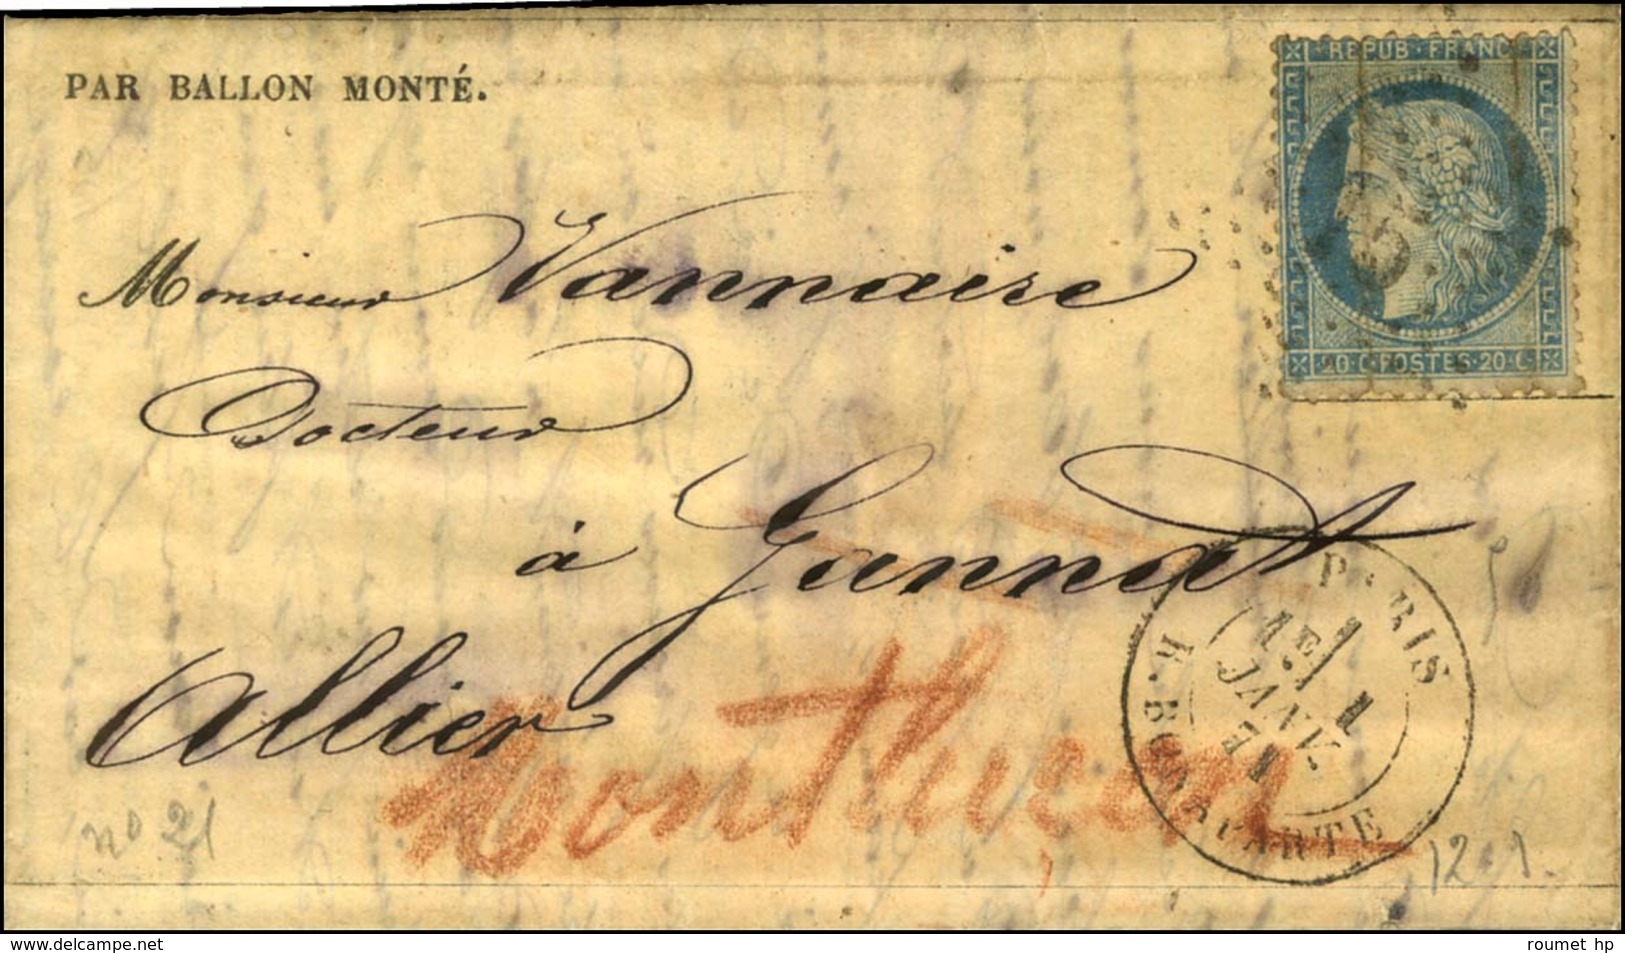 PAR BALLON MONTÉ.
REPUB·FRANC
20·C·POSTES·20·C
Monsieur Vannaire
Docteur
à Gannat
Allier
Montluçon
PARIS
1E/
1
JANV.
71
R. BONAPARTE
no 21
www.delcampe.net
roumet hp